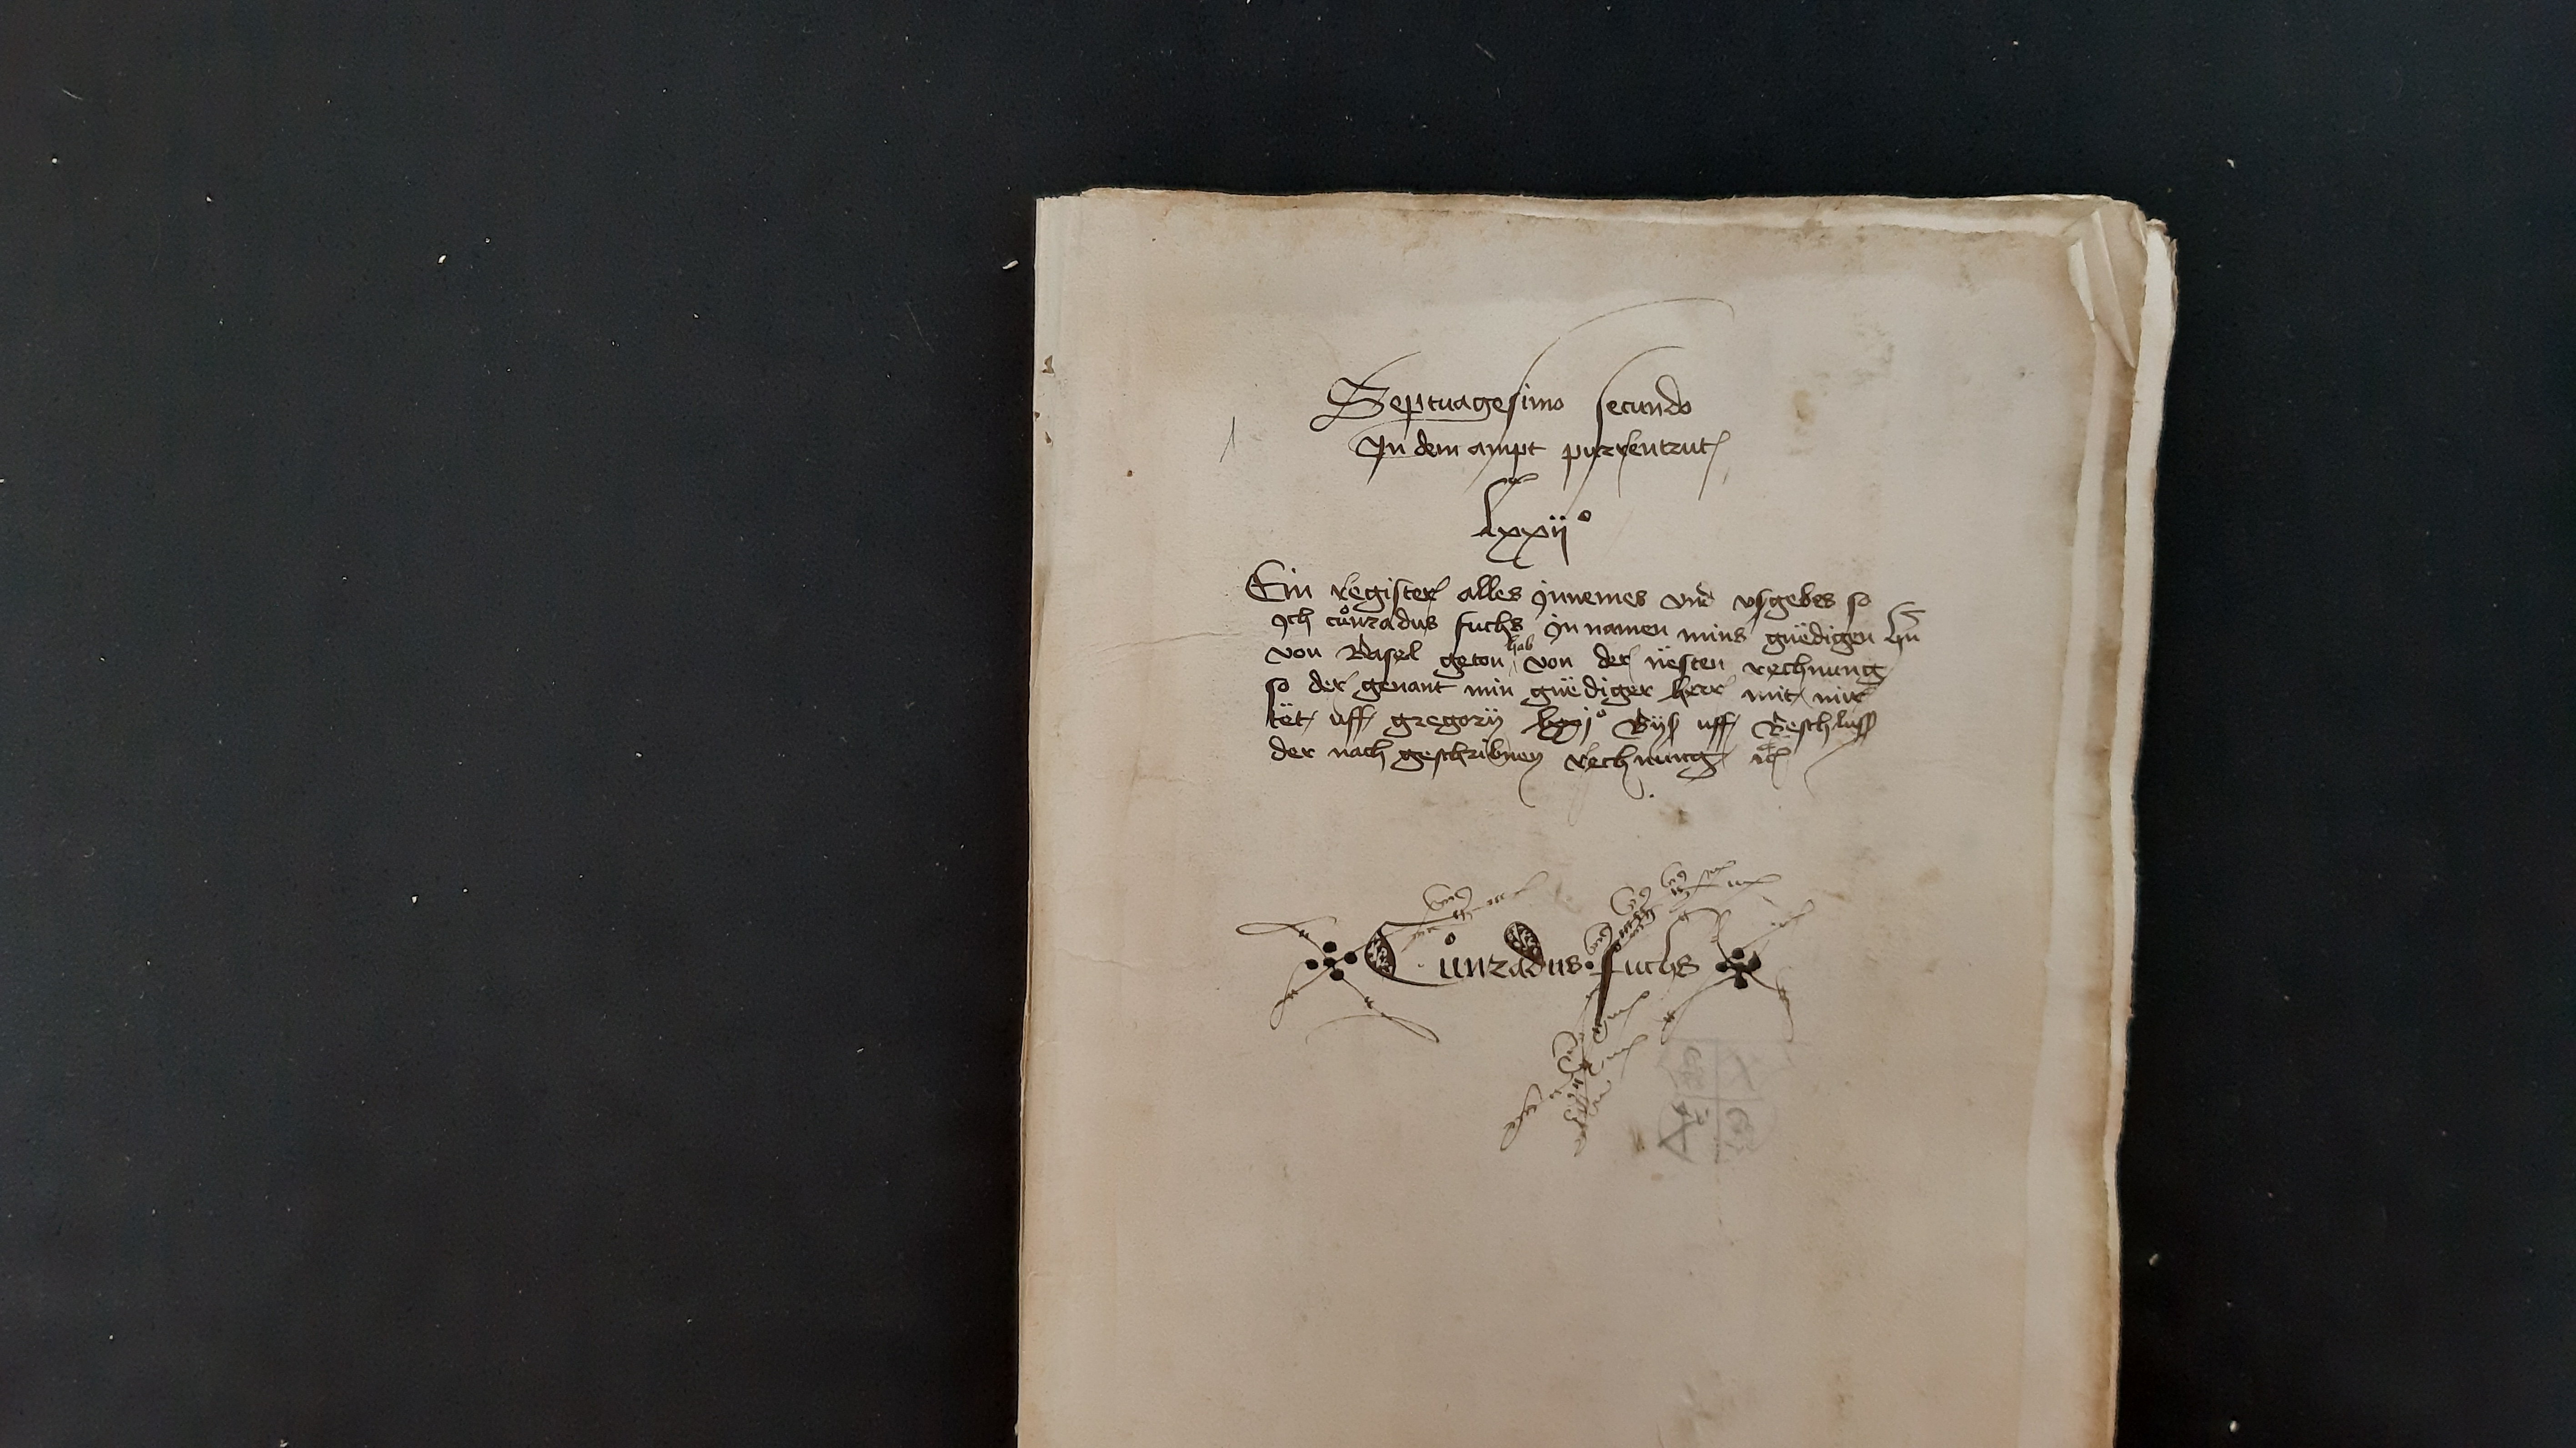 Septuagesimo secundo
In dem ampt purrentrut
lxxij°
Ein register alles ynnemes vnd vsgebes so
ych cůnradus fuchs yn namen mins gnëdigen hn̄
von Basel geton hab von der nësten rechnung
so der genant min gnëdiger herr mit mir
tët uff gregorij lxxj° Byß uff Beschluss
der nach geschribnen rechnung etc
Cůnradus fuchs